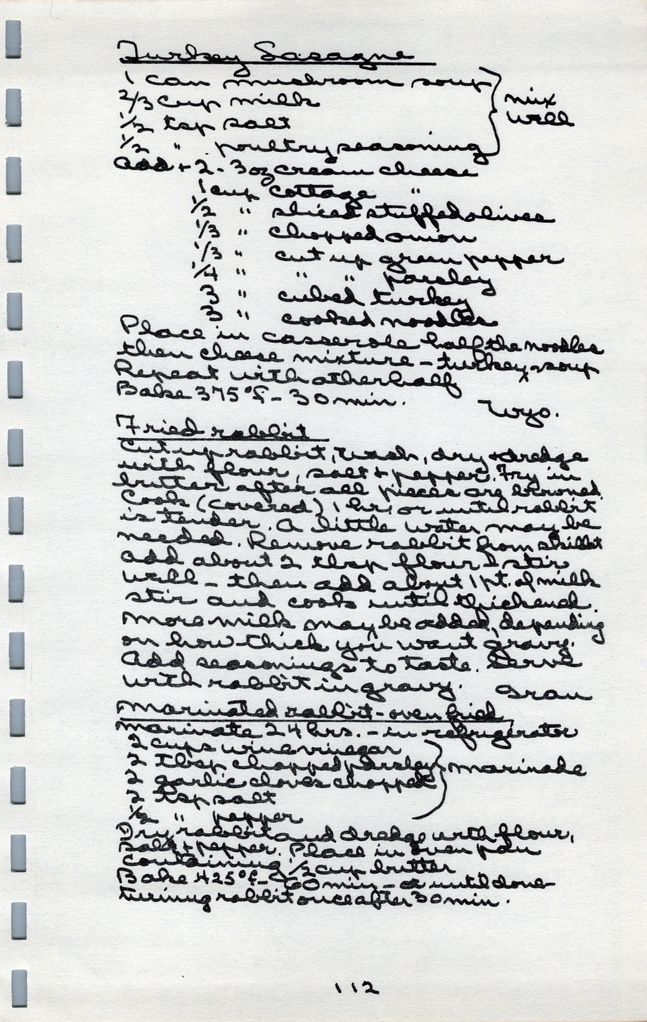 Turkey Lasagne
1 can mushroom soup
2/3 cup milk
1/2 tsp salt
1/2 " poultry seasoning
mix
well
Add + 2 - 3 oz cream cheese
1 cup cottage "
1/2 " sliced stuffed olives
1/3 " chopped onion
1/3 " cut up green pepper
1/4 " " " parsley
3 " cubed turkey
3 " cooked noodles
Place in casserole half the noodles
then cheese mixture - turkey - soup
Repeat with other half
Bake 375°F - 30 min.
Wyo.
Fried rabbit
Cut up rabbit, wash, dry + dredge
with flour, salt + pepper. Fry in
butter after all pieces are browned.
Cook (covered) 1 hr. or until rabbit
is tender. A little water may be
needed. Remove rabbit from skillet
add about 2 tbsp flour & stir
well - then add about 1 pt. of milk
stir and cook until thickend.
More milk may be added, depending
on how thick you want gravy.
Add seasonings to taste. Serve
with rabbit in gravy. Gran
Marinated rabbit - oven fried
marinate 24 hrs. - in refrigerator
2 cups wine vinegar
2 tbsp chopped parsley
2 garlic cloves chopped
2 tsp salt
1/2 " pepper
marinade
Dry rabbit and dredge with flour,
salt + pepper. Place in oven pan
containing 1/2 cup butter
Bake 425°F - 60 min - or until done
turning rabbit once after 30 min.
112